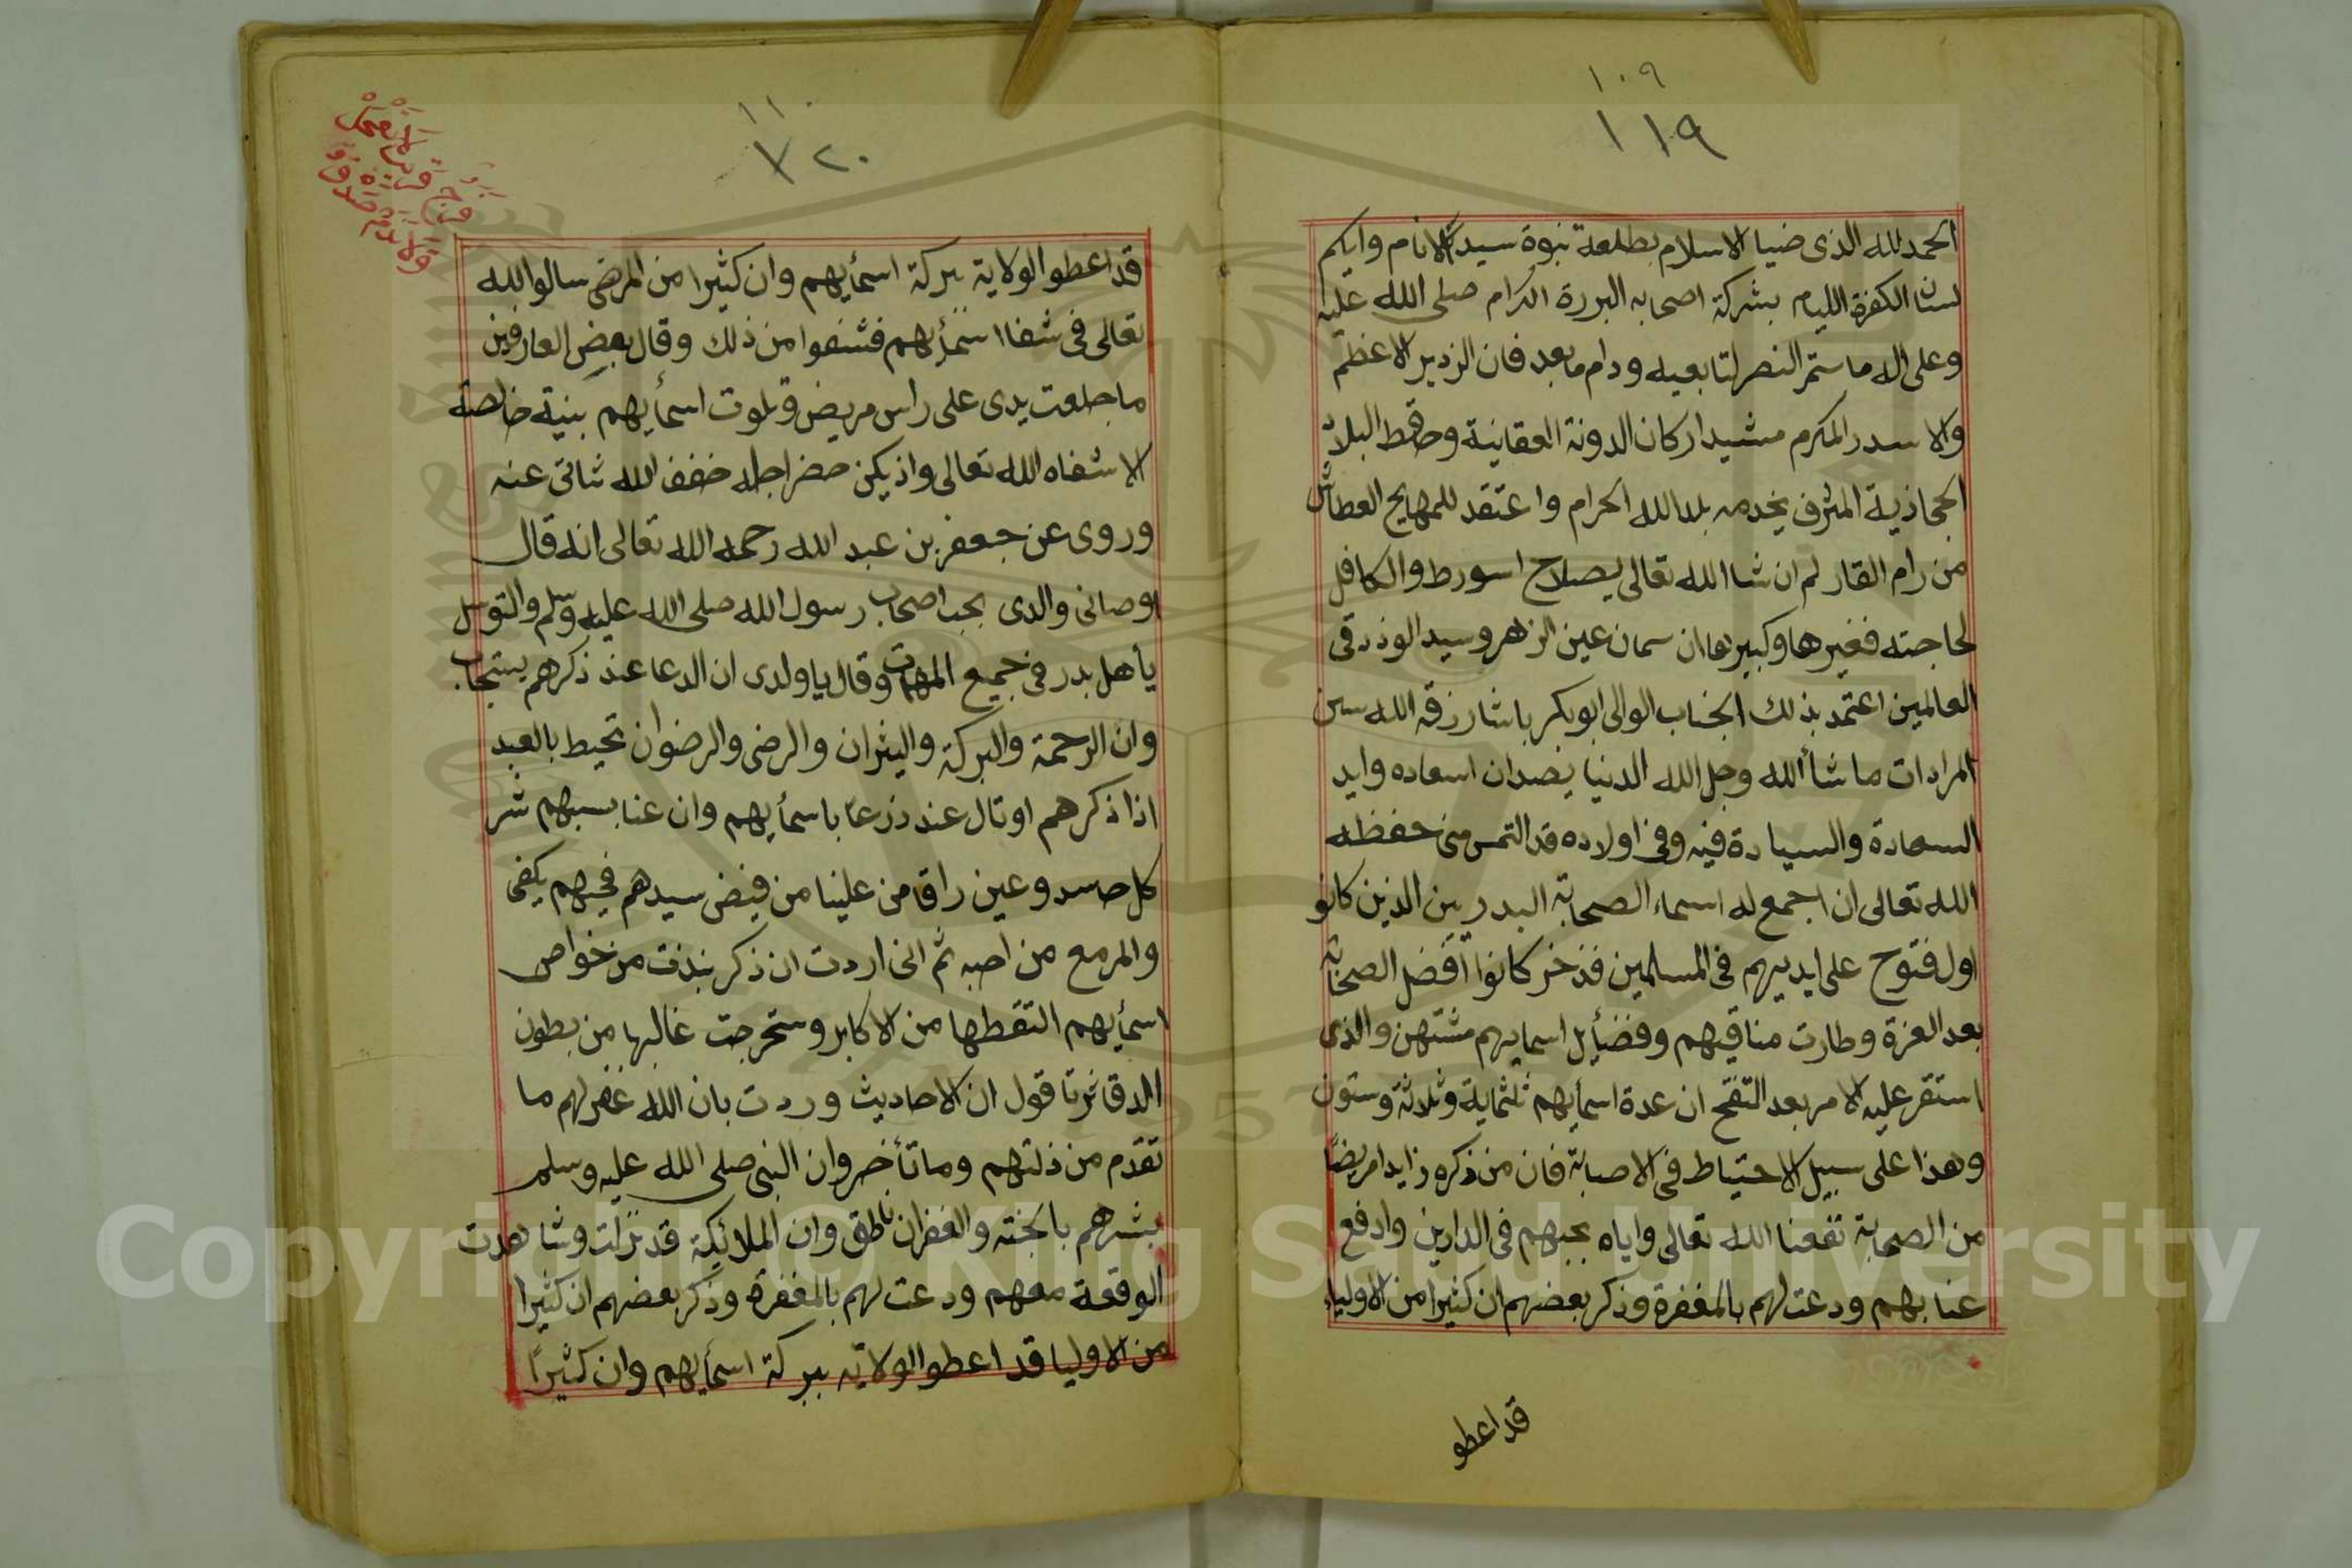 ١٠٩
١١٩
الحمد لله الذى ضيا الاسلام بطلعة نبوة سيد الانام وابكم
لسان الكفرة الليام بشركة اصحابه البررة الكرام صلى الله عليه
وعلى اله ما ستمر النصر لتابعيه ودام ما بعد فان الزدير الاعظم
والاسدر المكرم مشيد اركان الدونة العقانية وحاقط البلاد
الحجاذية المشرف بخدمه بلد الله الحرام واعتقد للمهايح العطاش
من رام القار لم ان شا الله تعالى يصلاح اسورط والكافل
لحاجته فغيرها وكبيرها ان سمان عين الزهر وسيد الوذدقى
العالمين اعتمد بذلك الجناب الوالى ابوبكر باشا رزقه الله سين
المرادات ما شأ الله وجل الله الدنيا يضدان اسعاده وايد
السعادة والسيادة فيه وفى اولاده قد التمس منى حفظه
الله تعالى ان اجمع له اسماء الصحابة البدريين الذين كانو
اول فتوح على ايديهم فى المسلمين فذخر كانوا افضل الصحابة
بعد العزة وطارت مناقيهم وفضأيل اسمايهم مشتهن والذى
استقر عليه الامر بعد التفتح ان عدة اسمأيهم ثلثماية وثلاثة وستون
وهذا على سبيل الاحتياط فى الاصابة فان من ذكره زايدا مريضا
من الصحابة تفعنا الله تعالى واياه بحبهم فى الدارين وادفع
عنا بهم ودعت لهم بالمغفرة وذكر بعضهم ان كثيرا من الاولياء
قد اعطو
١١٠
١٢٠
قد اعطو الولاية ببركة اسمأيهم وان كثيرا من المرضى سالوا الله
تعالى فى شفا اسمأيهم فشفوا من ذلك وقال بعض العارفين
ما جلعت يدى على راس مريض وتلوت اسمأيهم بنية خالصة
الا شفاه الله تعالى واذ يكن حضر اجله خفف الله تتالى عنه
وروى عن جعفر بن عبد الله رحمه الله تعالى انه قال
اوصانى والدى بحب اصحاب رسول الله صلى الله عليه وسلم والتوسل
يأهل بدر فى جميع المهمات وقال يا ولدى ان الدعا عند ذكرهم يستجاب
وان الرحمة والبركة والبثران والرضى والرضوان تحيط بالعبد
اذا ذكرهم اوتال عند دزعا باسمأيهم وان عنا بسبهم شر
كل حاسد وعين راقا من علينا من فيض سيدهم فحبهم يكفى
والمرمع من احبه ثم انى اردت ان ذكر بنذت من خواص
اسمأيهم التقطها من الاكابر وستخرجت غالبها من بطون
الدقاثرتا قول ان الاحاديث وردت بان الله غفر لهم ما
تقدم من ذلتهم وما تأخر وان النبى صلى الله عليه وسلم
بشرهم بالجنته والغفران ناطق وان الملائيكة قد نزلت وشاهدت
الوقعة معهم ودعت لهم بالمغفرة وذكر بعضهم ان كثيرا
من الاوليا قد اعطو الولاية ببركة اسمأيهم وان كثيرا
Copyright © King Saud University
1957